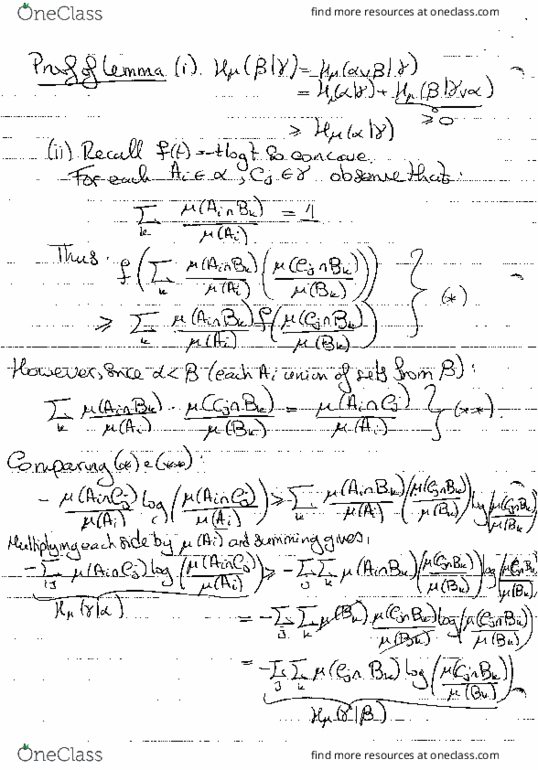 OneClass
find more resources at oneclass.com
Proof of Lemma (i). Hμ(β|γ) = Hμ(α∨β|γ)
= Hμ(α|γ) + Hμ(β|γ∨α)
≥ 0
≥ Hμ(α|γ)
(ii) Recall f(t) = -t log t is concave.
For each Ai ∈ α, Cj ∈ γ observe that:
∑k μ(Ai∩Bk)/μ(Ai) = 1
Thus
f(∑k μ(Ai∩Bk)/μ(Ai) (μ(Cj∩Bk)/μ(Bk)))
≥ ∑k μ(Ai∩Bk)/μ(Ai) f(μ(Cj∩Bk)/μ(Bk)) } (*)
However, since α<β (each Ai union of sets from β):
∑k μ(Ai∩Bk)/μ(Ai) · μ(Cj∩Bk)/μ(Bk) = μ(Ai∩Cj)/μ(Ai) } (**)
Comparing (*) e (**):
- μ(Ai∩Cj)/μ(Ai) log(μ(Ai∩Cj)/μ(Ai)) ≥ ∑k μ(Ai∩Bk)/μ(Ai) (μ(Cj∩Bk)/μ(Bk)) log(μ(Cj∩Bk)/μ(Bk))
Multiplying each side by μ(Ai) and summing gives,
-∑ij μ(Ai∩Cj) log(μ(Ai∩Cj)/μ(Ai)) ≥ -∑ij ∑k μ(Ai∩Bk) (μ(Cj∩Bk)/μ(Bk)) log(μ(Cj∩Bk)/μ(Bk))
Hμ(γ|α)
= -∑j ∑k μ(Bk) μ(Cj∩Bk)/μ(Bk) log(μ(Cj∩Bk)/μ(Bk))
= -∑j ∑k μ(Cj∩Bk) log(μ(Cj∩Bk)/μ(Bk))
Hμ(γ|β)
OneClass
find more resources at oneclass.com